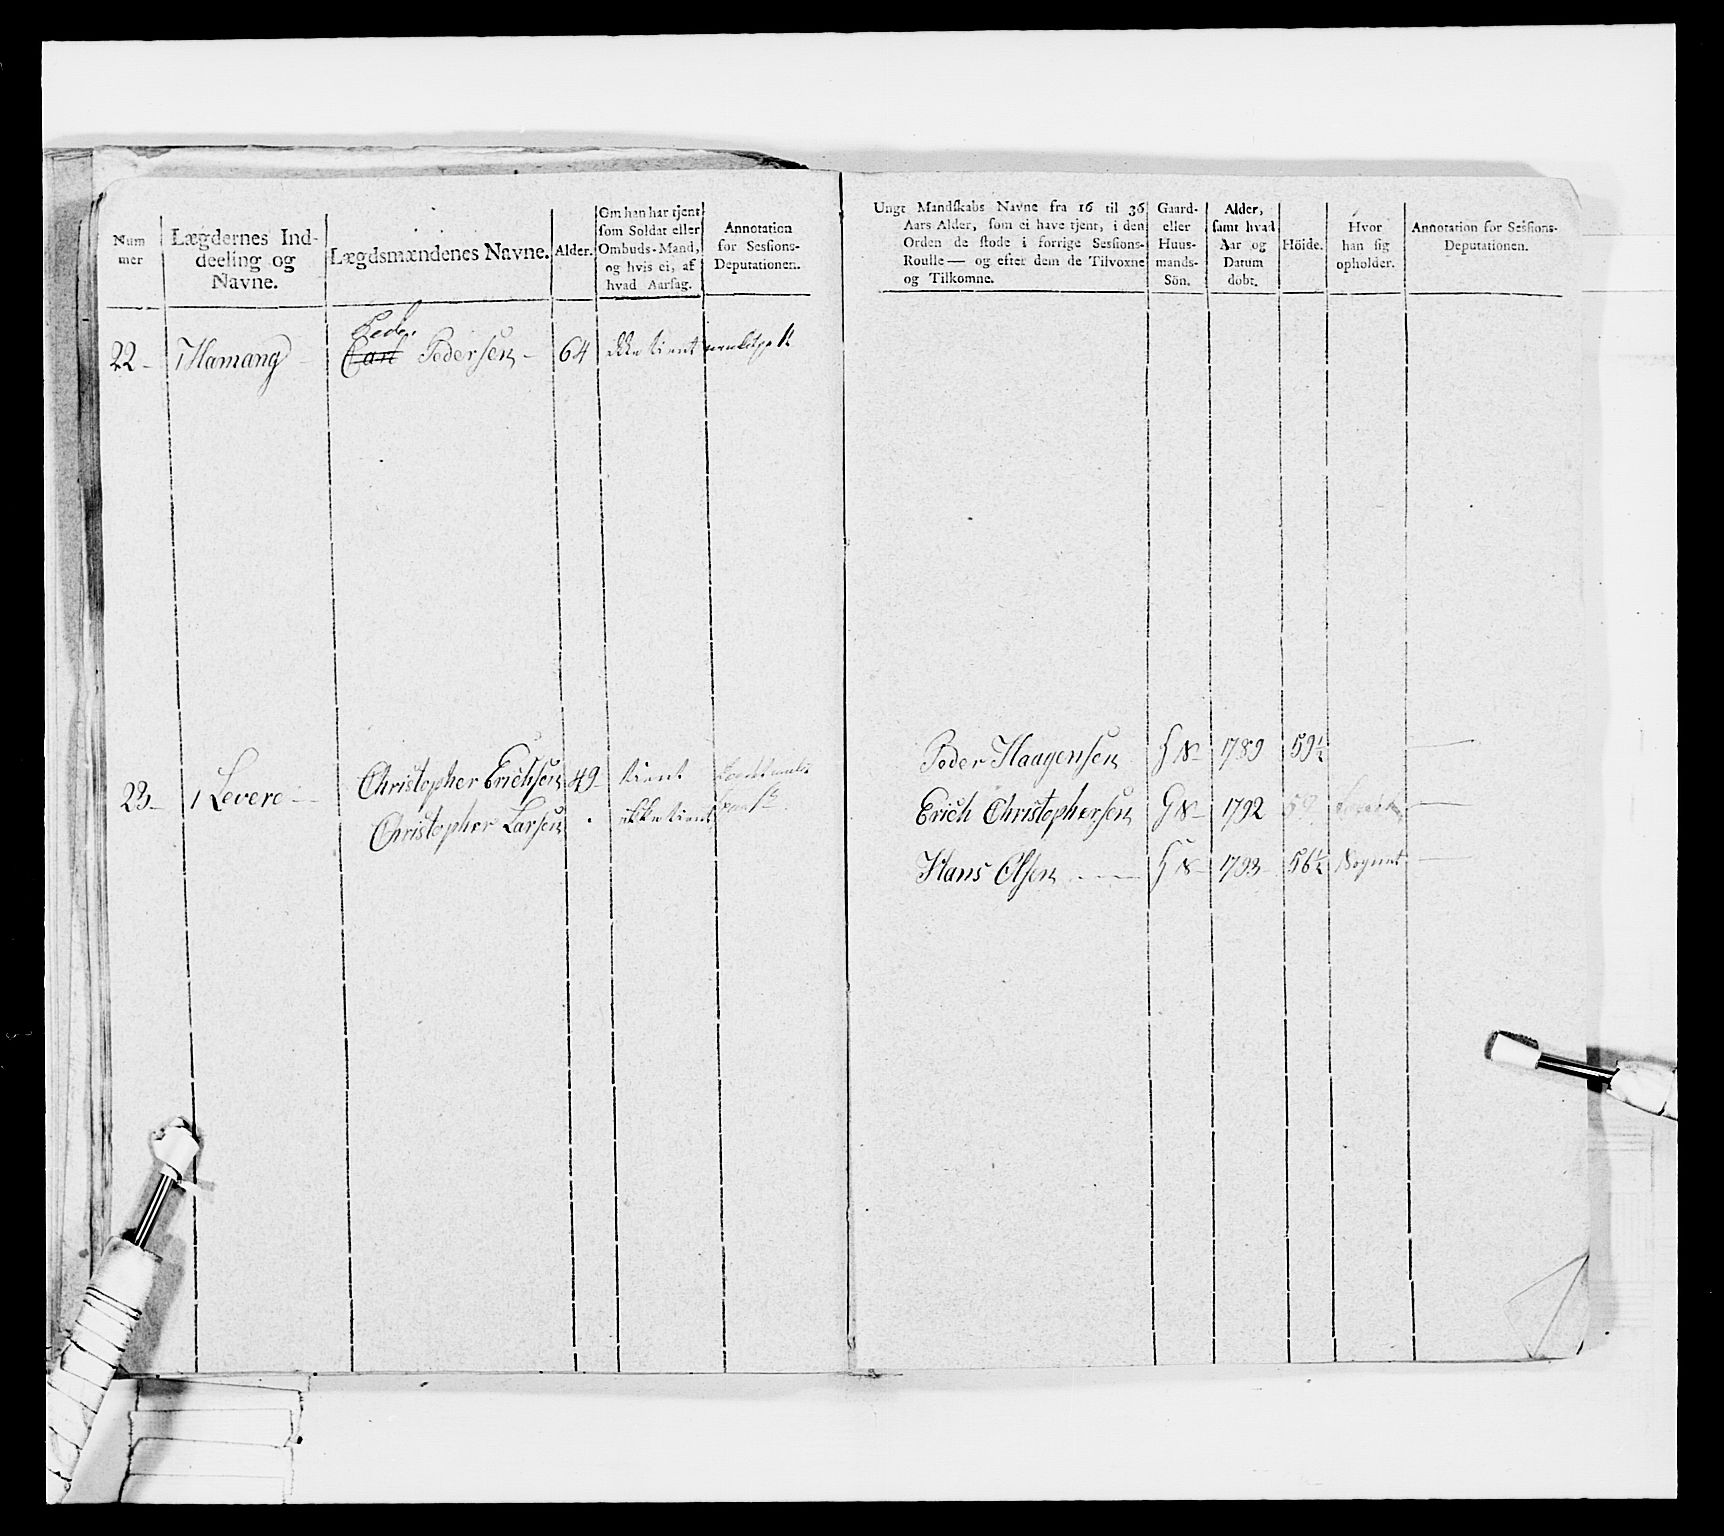 Num
mer
Lægdernes Ind-
deeling og
Navne.
Lægdsmændenes Navne.
Alder.
Om han har tjent
som Soldat eller
Ombuds-Mand,
og hvis ei, af
hvad Aarsag.
Annotation
for Sessions-
Deputationen.
22 Hamang Peder
Carl Pedersen 64 ikke tient
23 1 Levere Christopher Erichsen 49 tient
Christopher Larsen ikke tient
Ungt Mandskabs Navne fra 16 til 36
Aars Alder, som ei have tjent, i den
Orden de stode i forrige Sessions-
Roulle — og efter dem de Tilvoxne
og Tilkomne.
Gaard-
eller
Huus-
mands-
Sön.
Alder,
samt hvad
Aar og
Datum
dobt.
Höide.
Hvor
han sig
opholder.
Annotation for Sessions-
Deputationen.
Peder Haagensen 1789 59½
Erich Christophersen 1792 59
Hans Olsen 1793 56½